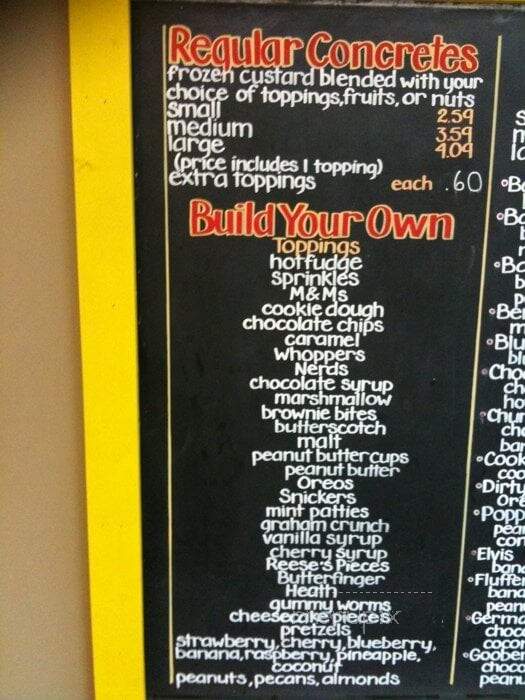 Regular Concretes
frozen custard blended with your
choice of toppings, fruits, or nuts
small 2.59
medium 3.59
large 4.09
(price includes 1 topping)
extra toppings each .60
Build Your Own
Toppings
hot fudge
sprinkles
M&Ms
cookie dough
chocolate chips
caramel
Whoppers
Nerds
chocolate syrup
marshmallow
brownie bites
butterscotch
malt
peanut butter cups
peanut butter
Oreos
Snickers
mint patties
graham crunch
vanilla syrup
cherry syrup
Reese's Pieces
Butterfinger
Heath
gummy worms
cheesecake pieces
pretzels
strawberry, cherry, blueberry,
banana, raspberry, pineapple,
coconut
peanuts, pecans, almonds
Elvis